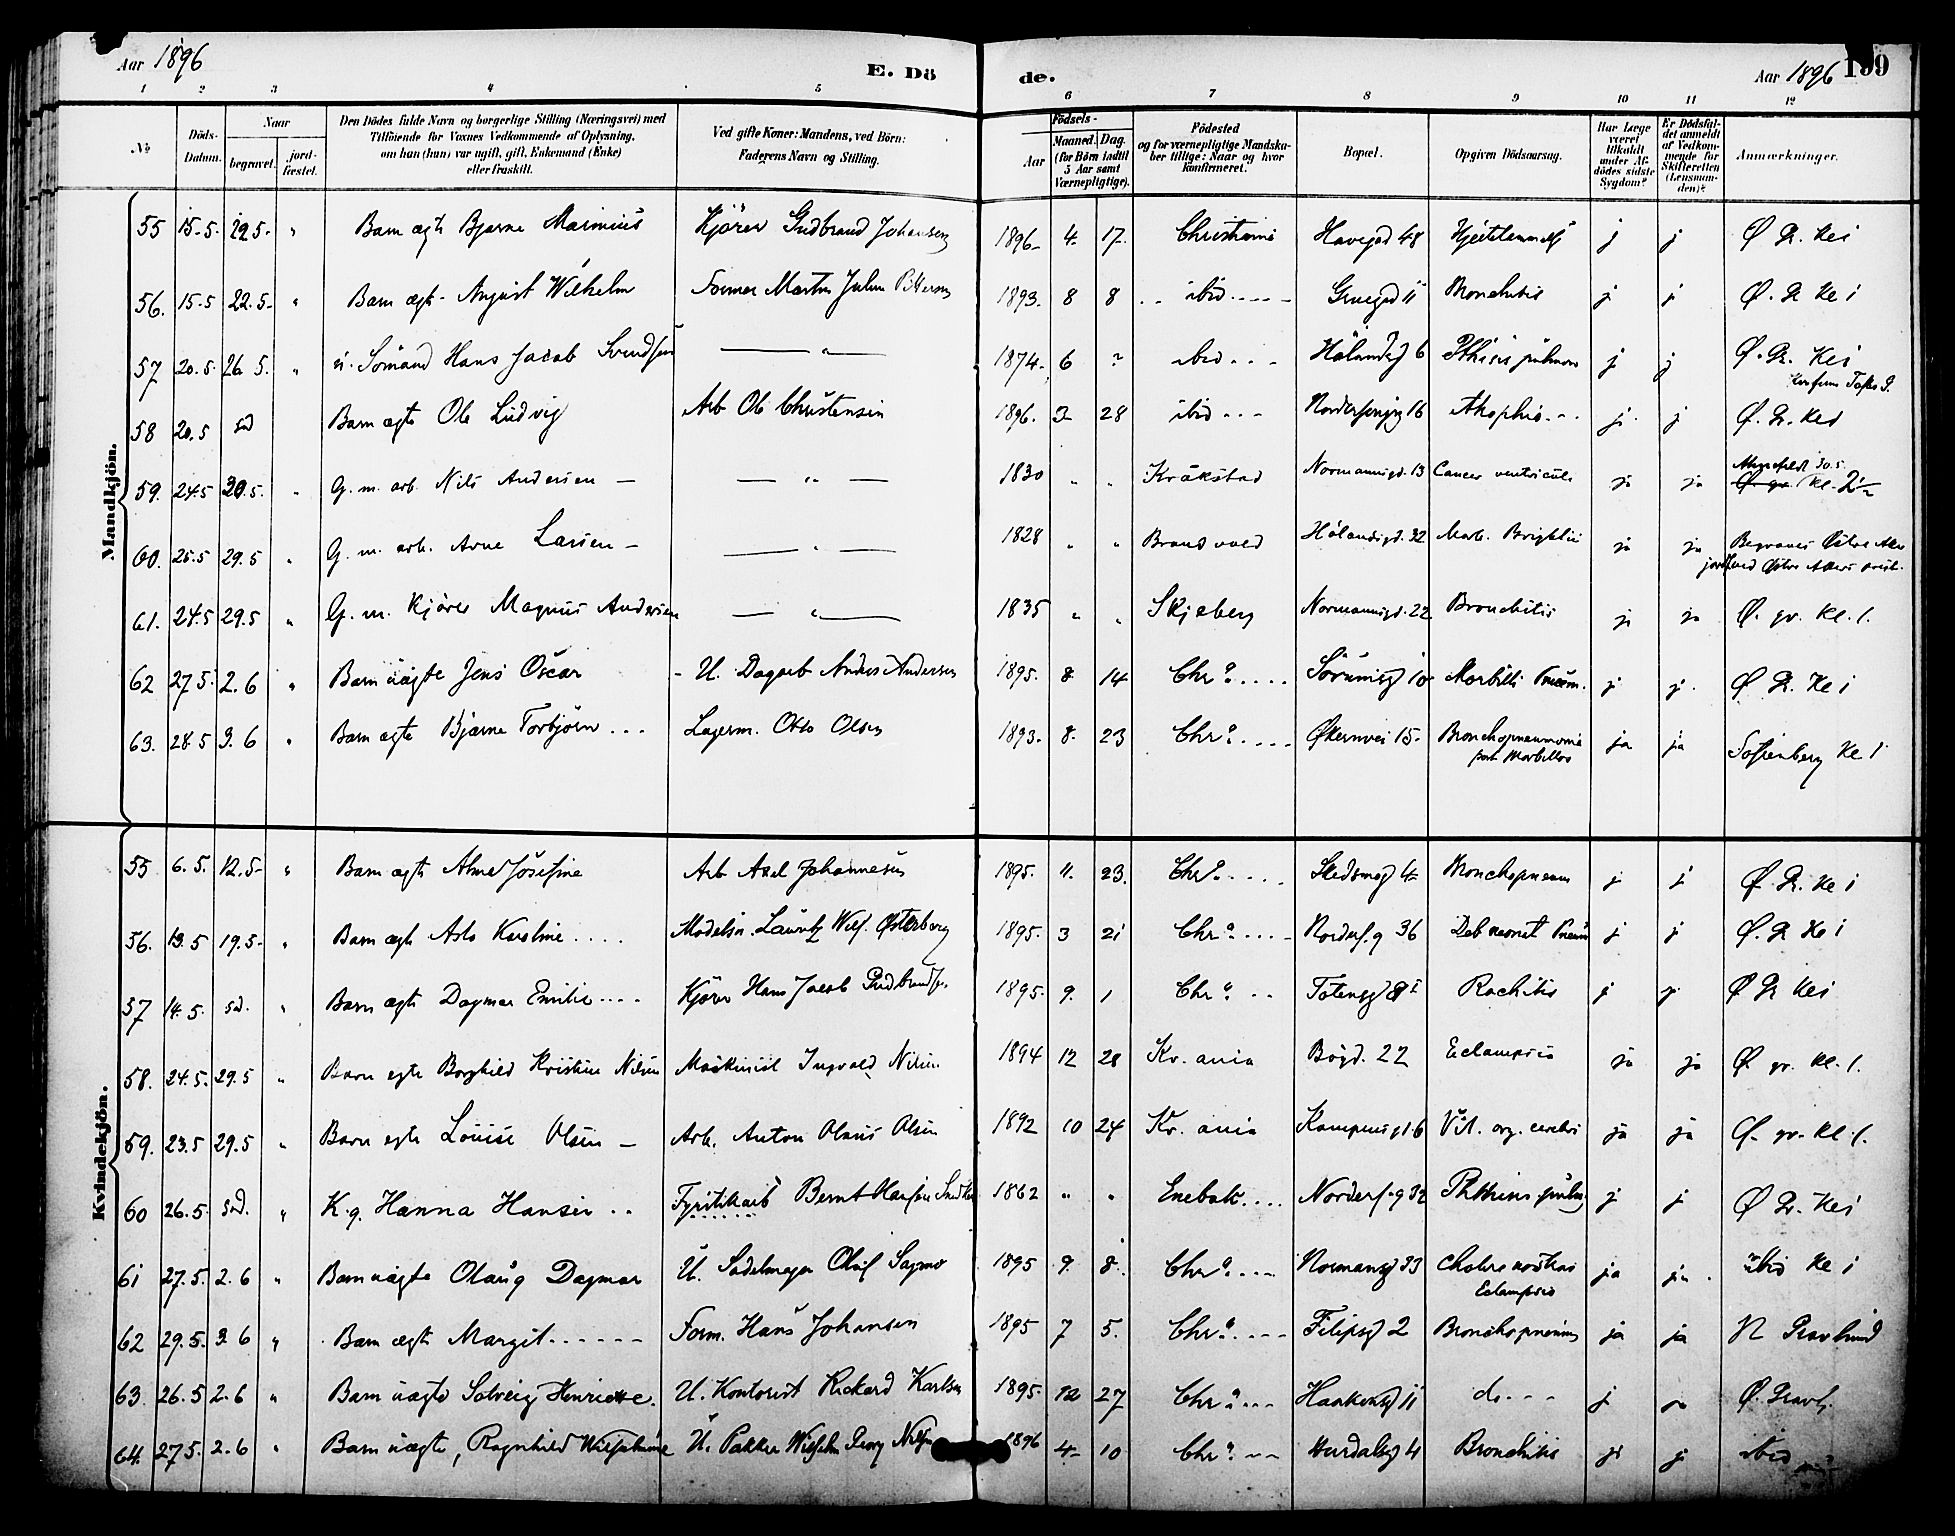 Aar 1896 E. Dö de. Aar 1896 199
1 2 3 4 5 6 7 8 9 10 11 12
No
Döds-Datum.
Naar
begravet.
jord-fæstet.
Den Dödes fulde Navn og borgerlige Stilling (Næringsvei) med
Tilföiende for Voxnes Vedkommende af Oplysning,
om han (hun) var ugift, gift, Enkemand (Enke)
eller fraskilt.
Ved gifte Koner: Mandens, ved Börn:
Faderens Navn og Stilling.
Födsels-
Aar
Maaned. Dag.
(for Börn indtil
5 Aar samt
Værnepligtige).
Födested
og for værnepligtige Mandska-
ber tillige: Naar og hvor
konfirmeret.
Bopæl.
Opgiven Dödsaarsag.
Har Læge
været
tilkaldt
under Af-
dödes sidste
Sygdom?
Er Dödsfal-
det anmeldt
af Vedkom-
mende for
Skifteretten
(Lensman-
den)?
Anmærkninger.
Mandkjön.
55 15.5. 22.5. " Barn ægte Bjarne Marinius Kjörer Gudbrand Johansen 1896 4. 17. Christiania Havegd 48 j j Ø Gr. Kl 1
56. 15.5 22.5. " Barn ægte August Wilhelm Former Martin Julius 1893. 8 8 ibid Gruegd 11 Bronchitis j j Ø. Gr Kl 1
57 20.5. 26.5. " u. Sömand Hans Jacob Svendsen — " — 1874. 6 ? ibid Hölandsg 6 Phthisis pulmon j j Ø. Gr. Kl 1
58 20.5 sd Barn ægte Ole Ludvig Arb Ole Christensen 1896. 3 28 ibid 16 Atrophia j. j Ø. Gr. Kl 1
59. 24.5 30.5. " G. m. arb. Nils Andersen — " — 1830 " " Kråkstad Normannsgd. 13 Cancer ventriculi ja ja 30.5. Ø gr. Kl.
60. 25.5 29.5 " G. m. arb. Arne Larsen — " — 1828 " " Brandvold Hölandsgd. 32 Morb. Brightii ja ja Begraves Østre Aker
61. 24.5 29.5 " G. m. Kjörer Magnus Andersen — " — 1835 " " Skjeberg Normannsgd. 22 Bronchitis ja ja Ø. gr. Kl. 1.
62 27.5. 2.6 " Barn uægte Jens Oscar U. Dagarb Anders Andersen 1895. 8 14 Chra Sörumsg 10 Morbilli Pneum. j j. Ø Gr. Kl 1
63. 28.5 3.6 " Barn ægte Bjarne Torbjörn Lagerm. Otto Olsen 1893. 8. 23 Chra Økernvei 15 Bronchopneumonia
post Morbillos ja ja Sofienberg Kl 1
Kvindekjön.
55 6.5. 12.5 " Barn ægte Josefine Arb Axel Johannesen 1895. 11. 23. Chra Skedsmog 4 Bronchopneum j j Ø. Gr. Kl 1
56. 13.5 19.5. " Barn ægte Asta Karoline Lauritz Wilh. Østerberg 1895. 3 21 Chra Norderf. g 36 j j Ø. Gr Kl 1
57 14.5. sd. " Barn ægte Dagmar Emilie Kjörer Hans Jacob Gudbrandsen 1895. 9. 1 Chra Totensgd 8 I Rachitis j j Ø Gr Kl 1
58. 24.5. 29.5 " Barn egte Borghild Kristine Nilsen Maskinist Ingvald Nilsen 1894 12 28 Kr.ania Bögd. 22 Eclampsia ja ja Ø gr. Kl. 1.
59. 23.5 29.5 " Barn egte Louise Olsen — Arb. Anton Olaus Olsen 1892 10 24 Kr.ania Kampensgt 6 Vit. org. cerebri ja ja Ø. gr. Kl. 1.
60 26.5. sd. " K. g. Hanna Hansen Fyrstikarb Bernt 1862 " " Enebak Norderf. g 32 Phthisis pulm j j Ø Gr. Kl 1
61 27.5. 2.6 " Barn uægte Olaug Dagmar U. Sadelmager Oluf Sagmo 1895 9. 8. Chra Normansgd 33 Cholera nostras
Eclampsia ja ja ibid Kl 1
62 29.5. 3.6 " Barn ægte Margit Form. Hans Johansen 1895 7 5. Chra Filipsgd 2 Bronchopneum ja ja N Gravlund
63. 26.5 2.6 " Barn uægte Solveig Henriette. U. Kontorist Rickard Karlsen 1895. 12 27 Chra Haakonsgd 11 do j Ø. Gravl.
64. 27.5. 2.6 " Barn uægte, Ragnhild Wilhelmine U. Pakker Wilhelm Georg 1896 4. 10 Chra Hurdalsgd 4 Bronchitis j j ibid